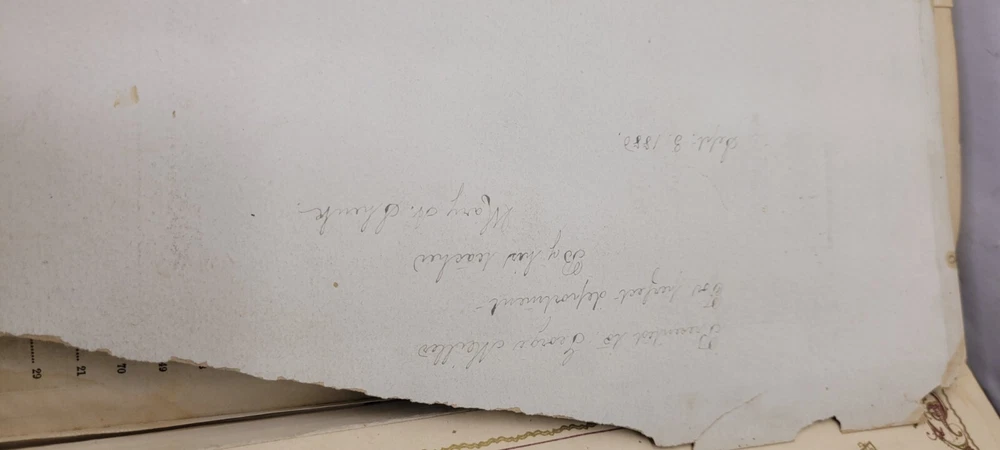 Presented to George
For perfect deportment
By his teacher
Mary A. Shenk
Sept. 3, 1880.
29
21
70
49